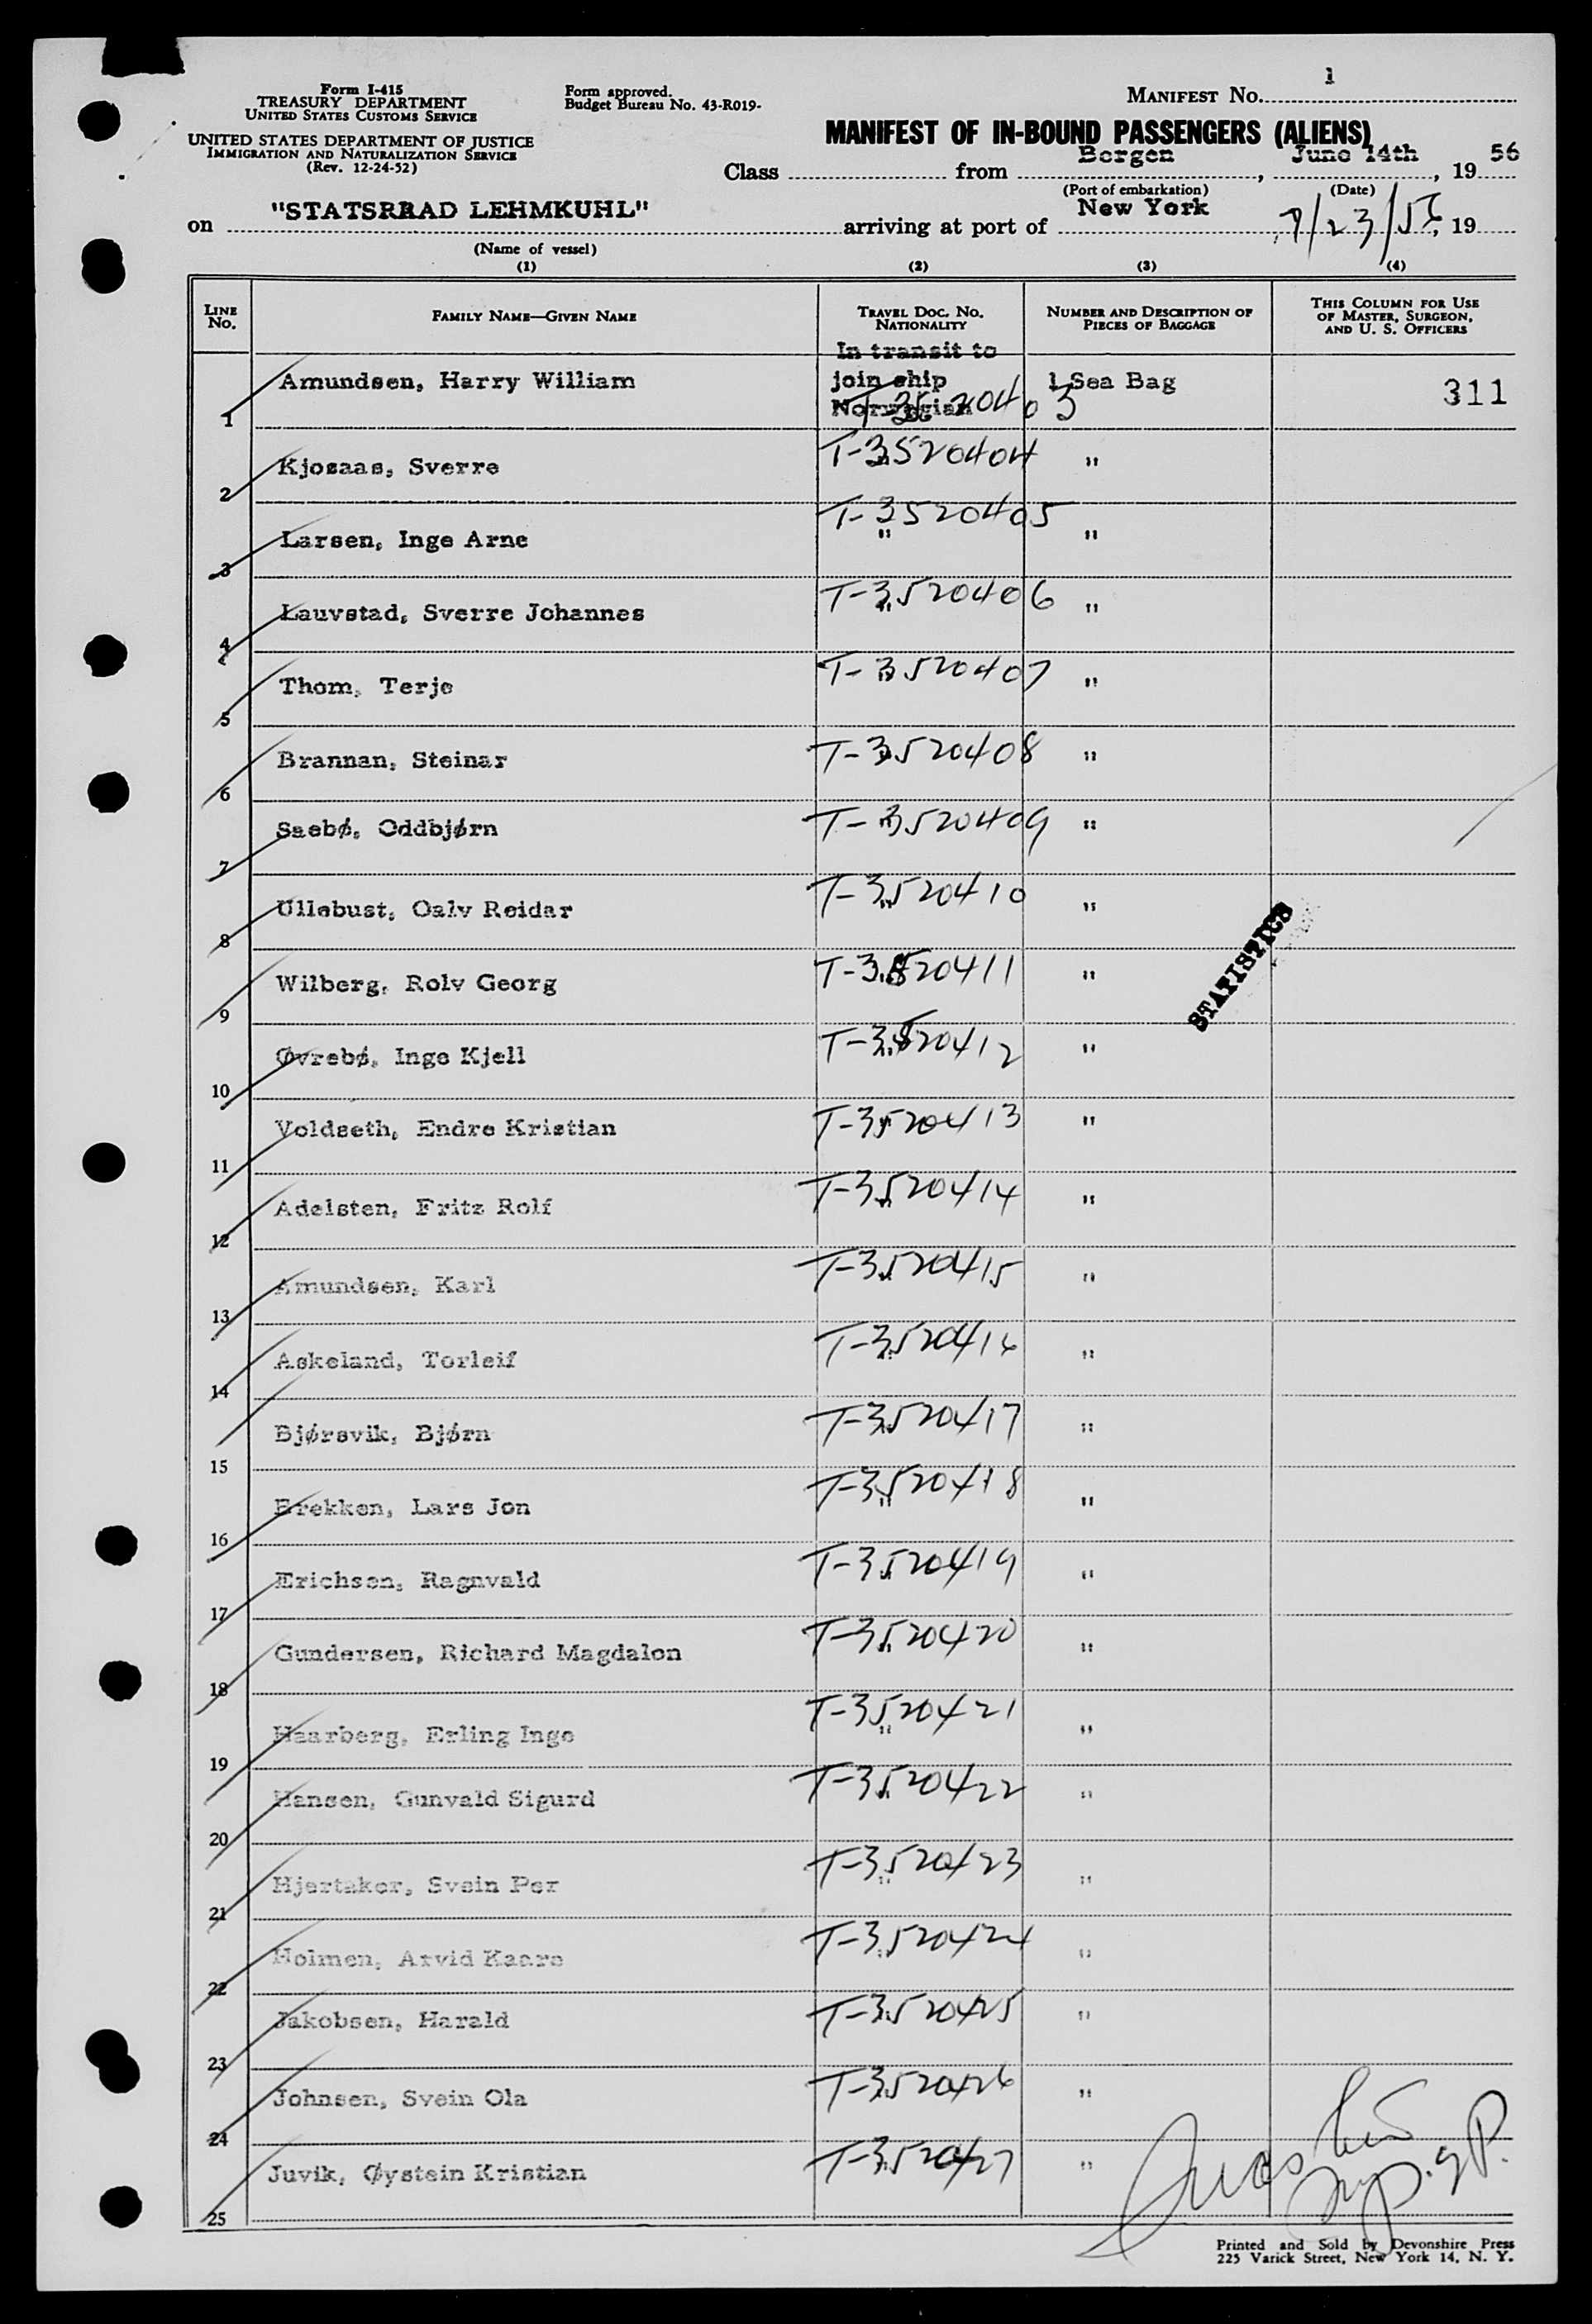 Form I-415
TREASURY DEPARTMENT
UNITED STATES CUSTOMS SERVICE
UNITED STATES DEPARTMENT OF JUSTICE
IMMIGRATION AND NATURALIZATION SERVICE
(Rev. 12-24-52)
Form approved.
Budget Bureau No. 43-R019-
MANIFEST No. 1
MANIFEST OF IN-BOUND PASSENGERS (ALIENS)
Class from Bergen, June 14th, 19 56
(Port of embarkation) (Date)
on "STATSRRAD LEHMKUHL" arriving at port of New York, 7/23/56, 19
(Name of vessel)
(1) (2) (3) (4)
LINE No. FAMILY NAME—GIVEN NAME TRAVEL DOC. No. NATIONALITY NUMBER AND DESCRIPTION OF PIECES OF BAGGAGE THIS COLUMN FOR USE OF MASTER, SURGEON, AND U. S. OFFICERS
In transit to
1 Amundsen, Harry William join ship 1 Sea Bag 311
Norwegian T-3520403
2 Kjosaas, Sverre T-3520404 "
3 Larsen, Inge Arne T-3520405 " "
4 Lauvstad, Sverre Johannes T-3520406 " "
5 Thom, Terje T-3520407 " "
6 Brannan, Steinar T-3520408 " "
7 Saebø, Oddbjørn T-3520409 " "
8 Ullebust, Oalv Reidar T-3520410 " "
9 Wilberg, Rolv Georg T-3520411 " "
10 Øvrebø, Inge Kjell T-3520412 " "
11 Voldseth, Endre Kristian T-3520413 " "
12 Adelsten, Fritz Rolf T-3520414 " "
13 Amundsen, Karl T-3520415 " "
14 Askeland, Torleif T-3520416 " "
15 Bjørsvik, Bjørn T-3520417 " "
16 Brekken, Lars Jon T-3520418 " "
17 Erichsen, Ragnvald T-3520419 " "
18 Gundersen, Richard Magdalon T-3520420 " "
19 Haarberg, Erling Inge T-3520421 " "
20 Hansen, Gunvald Sigurd T-3520422 " "
21 Hjertaker, Svein Per T-3520423 " "
22 Holmen, Arvid Kaare T-3520424 " "
23 Jakobsen, Harald T-3520425 " "
24 Johnsen, Svein Ola T-3520426 " "
25 Juvik, Øystein Kristian T-3520427 " "
STATISTICS
Printed and Sold by Devonshire Press
225 Varick Street, New York 14, N. Y.